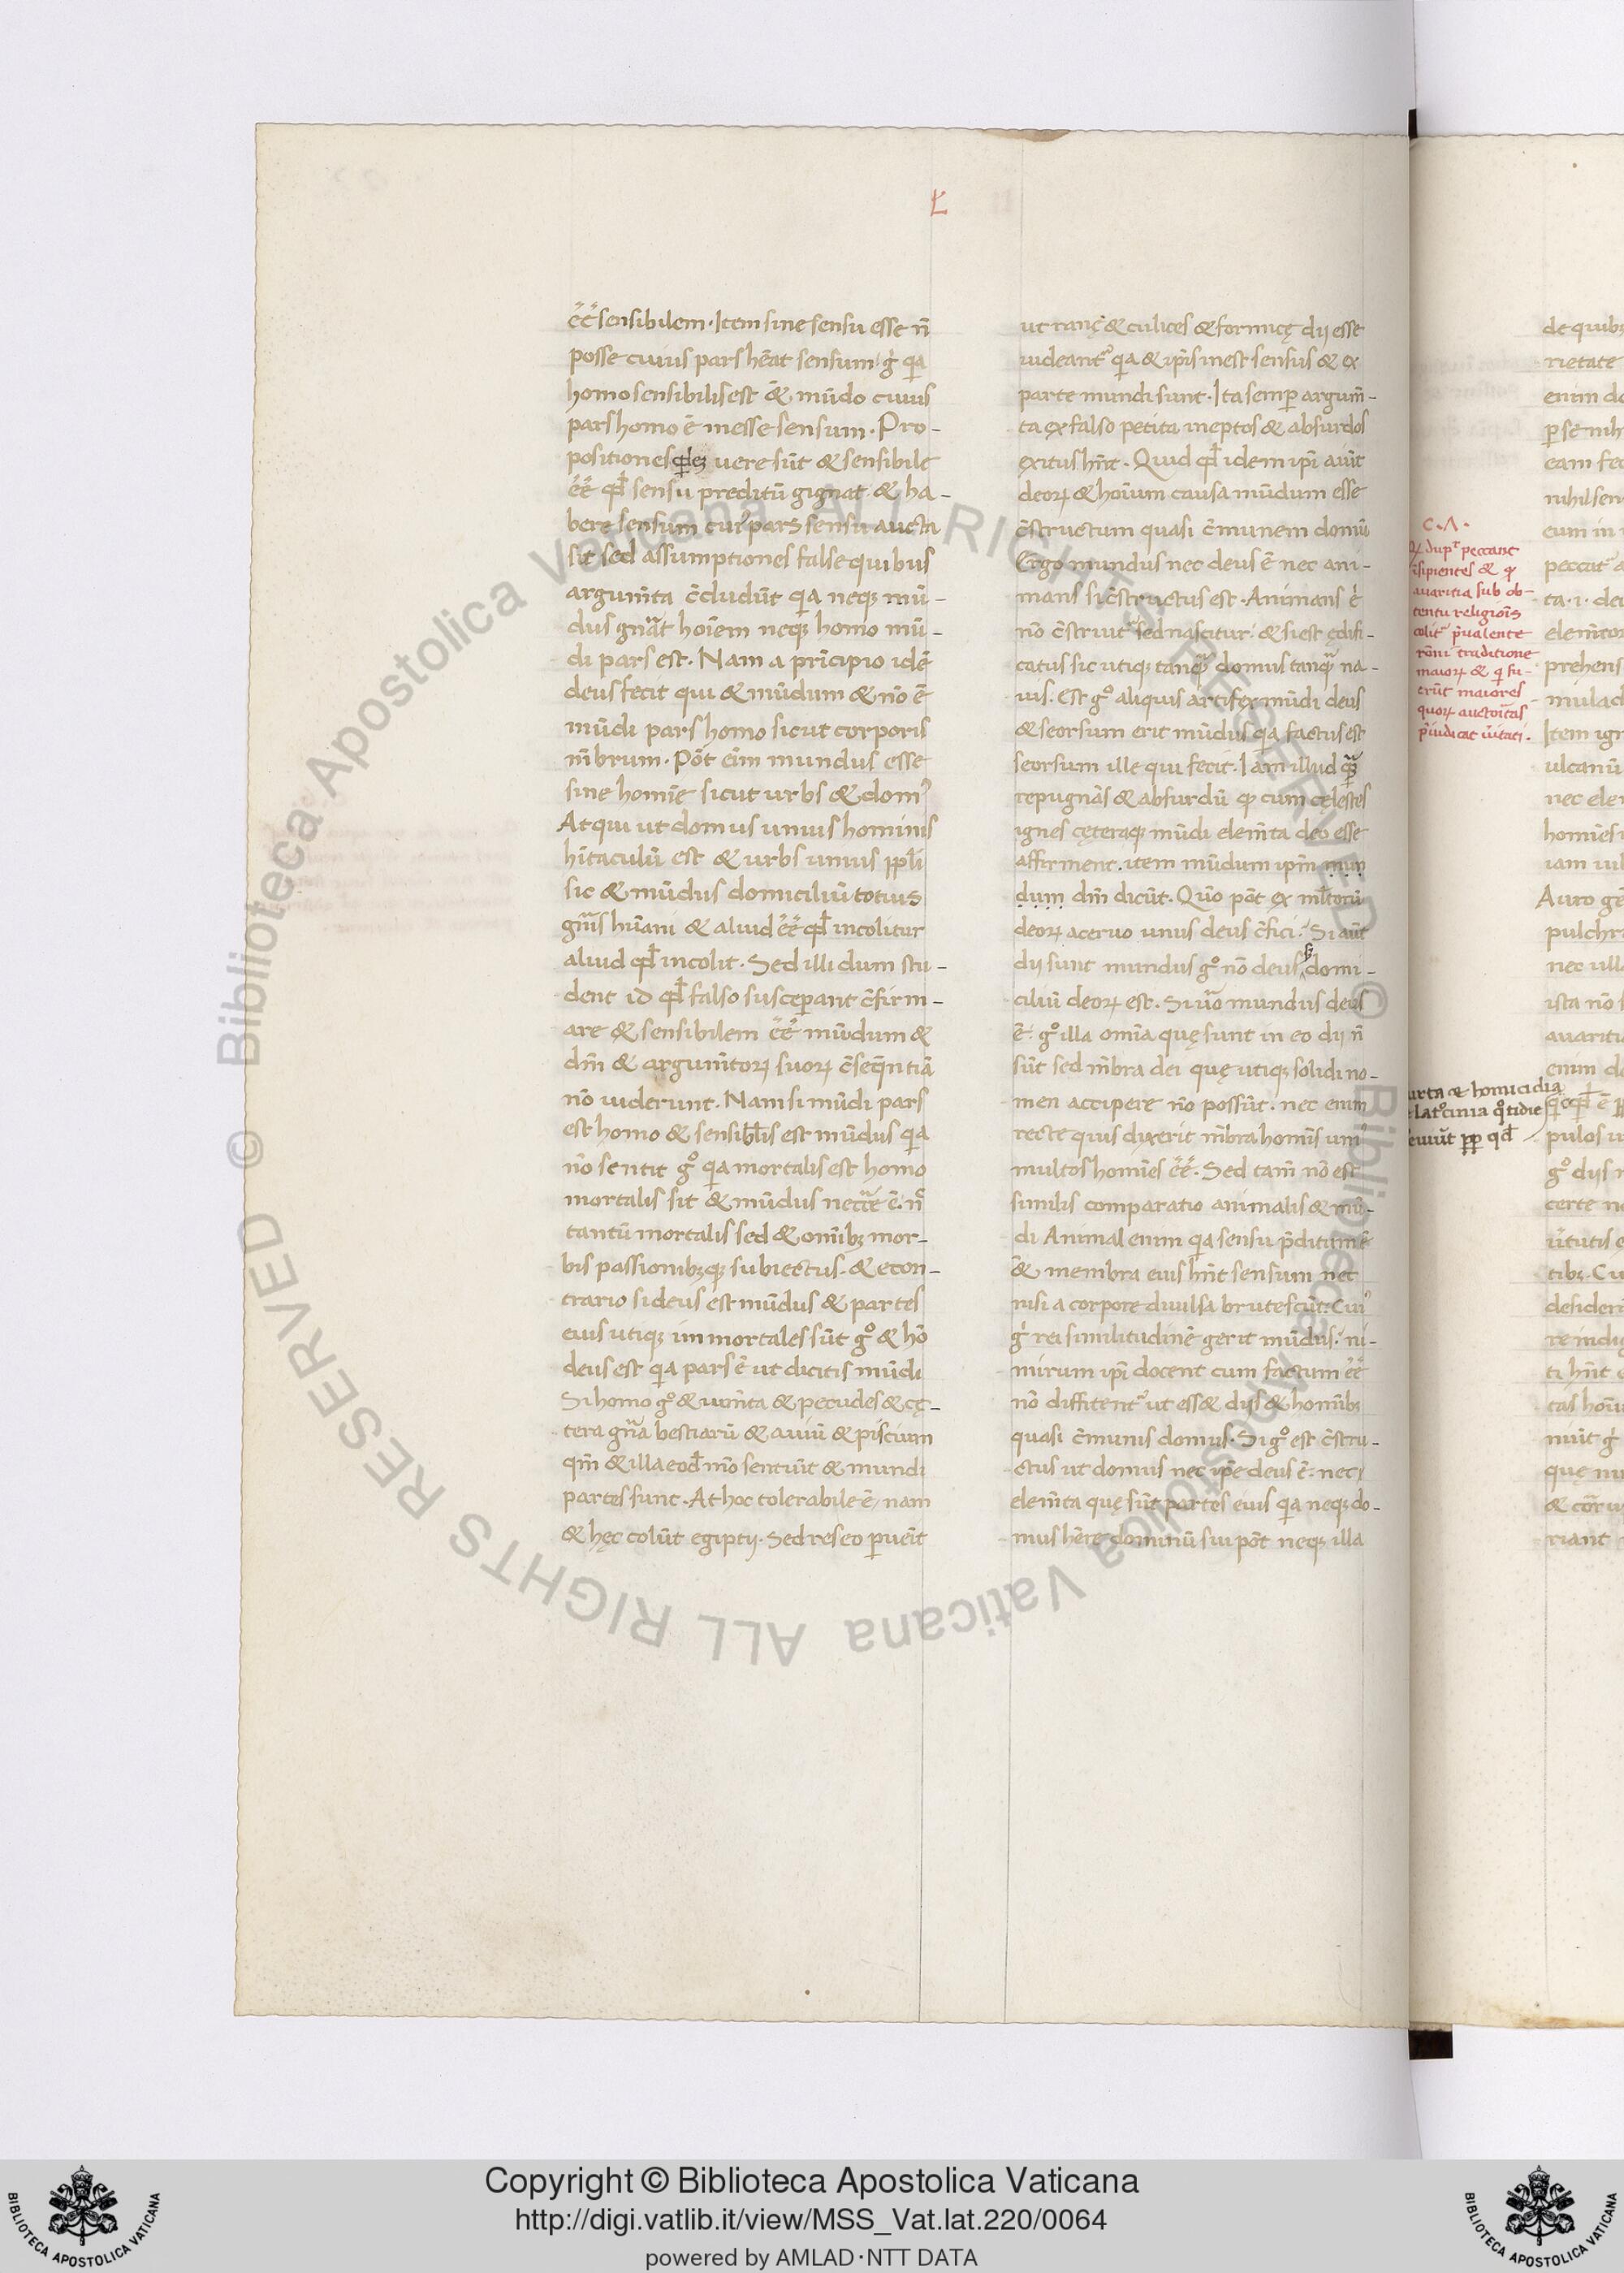 Ł
e͞e͞ sensibilem. Item sine sensu esse n̄
posse cuius pars hēat sensum. g̊ qa
homo sensibilis est & mūdo cuius
pars homo ē inesse sensum. Pro-
positiones uere sūt & sensibile
ēe qd̄ sensu preditū gignat & ha-
bere sensum cuiꝰ pars sensu aucta
sit sed assumptiones false quibus
argum̄ta c̄cludūt qa neqꝫ mū-
dus gn̄at hoīem neqꝫ homo mū-
di pars est. Nam a prīcipio idē
deus fecit qui & mūdum & nō ē
mūdi pars homo sicut corporis
m̄brum. Pōt eīm mundus esse
sine homīe sicut urbs & domꝰ
Atqui ut domus unius hominis
hītaculū est & urbs unius ppl̄i
sic & mūdus domiciliū totius
gn̄is hūani & aliud ēe qd̄ incolitur
aliud qd̄ incolit. Sed illi dum stu-
dent id qd̄ falso susceperant c̄firm-
are & sensibilem ēe mūdum &
dm̄ & argum̄torꝝ suorꝝ c̄seqn̄tiā
nō uiderunt. Nam si mūdi pars
est homo & sensibl̄is est mūdus qa
nō sentit g° qa mortalis est homo
mortalis sit & mūdus necc̄e ē. n̄
tantū mortalis sed & om̄ibꝫ mor-
bis passionibꝫqꝫ subiectus. & econ-
trario si deus est mūdus & partes
eius utiqꝫ immortales sūt g° & hō
deus est qa pars ē ut dicitis mūdi
Si homo g° & ium̄ta & pecudes & cę-
tera gn̄a bestiarū & auiū & piscium
qm̄ & illa eod̄ mō sentiūt & mundi
partes sunt. At hoc tolerabile ē / nam
& hęc colūt egiptij. Sed res eo pueīt
ut ranę & culices & formicę dij esse
uideantᷣ qa & ip̄is inest sensus & ex
parte mundi sunt. Ita semp argum̄-
ta ex falso petita ineptos & absurdos
exitus hn̄t. Quid qd̄ idem ip̄i aiūt
deorꝝ & hoīum causa mūdum esse
c̄structum quasi c̄munem domū
Ergo mundus nec deus ē nec ani-
mans si c̄structus est. Animans ē
nō c̄struitᷣ sed nascitur. & si est ędifi-
catus sic utiqꝫ tanqꝫ domus tanqꝫ na-
uis. Est g° aliquis artifex mūdi deus
& seorsum erit mūdus qa factus est
seorsum ille qui fecit. Iam illud qꝫ
repugnās & absurdū qꝫ cum cęlestes
ignes cęteraqꝫ mūdi elem̄ta deo esse
affirment. item mūdum ip̄m mun
dum dm̄ dicūt. Quō pōt ex ml̄torū
deorꝝ aceruo unus deus c̄fici. Si aūt
dij sunt mundus g° nō deus s; domi-
ciliū deorꝝ est. Si u͞o mundus deus
ē. g° illa omīa quę sunt in eo dij n̄
sūt sed m̄bra dei quę utiqꝫ solidi no-
men accipere nō possūt. nec enim
recte quis dixerit m̄bra homīs uniꝰ
multos homīes ēe. Sed tam̄ nō est
similis comparatio animalis & mū-
di Animal enim qa sensu p̄ditum ē
& membra eius hn̄t sensum nec
nisi a corpore diuulsa brutescūt. Cuiꝰ
g̊ rei similitudinē gerit mūdus. ni-
mirum ip̄i docent cum factum ēe
nō diffitentᷣ ut esset & dijs & homībꝫ
quasi c̄munis domus. Si g° est c̄stru-
ctus ut domus nec ip̄e deus ē. nec
elem̄ta quę sūt partes eius qa neqꝫ do-
mus hēre dominū sui pōt neqꝫ illa
C. Λ.
peccant
isipientes & q
auaritia sub ob-
tentu religiois
colitᷣ p̄ualente
traditione
maiorꝝ & q fu-
erūt maiores
quorꝝ auctoītas
p̄iudicat ūitati.
& homicidia
latocinia qtidie
de quibꝫ
rietate
enim
eam
eum in
peccatᷣ
elem̄to
Item ign
ulcanū
homīes
Auro
pulchr
nec
ista nō
auariti
enim
pulos
g° dijs
certe
desideri
ti hn̄t
riant
Biblioteca Apostolica Vaticana ALL RIGHTS RESERVED ©
Biblioteca Apostolica Vaticana ALL RIGHTS RESERVED ©
Copyright © Biblioteca Apostolica Vaticana
http://digi.vatlib.it/view/MSS_Vat.lat.220/0064
powered by AMLAD·NTT DATA
BIBLIOTECA APOSTOLICA VATICANA
BIBLIOTECA APOSTOLICA VATICANA